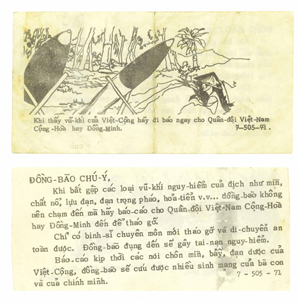 Khi thấy vũ-khí của Việt-Cộng hãy đi báo ngay cho Quân-đội Việt-Nam
Cộng-Hoà hay Đồng-Minh.
7-505-71.
ĐỒNG-BÀO CHÚ-Ý,
Khi bắt gặp các loại vũ-khí nguy-hiểm của địch như mìn,
chất nổ, lựu đạn, đạn trọng pháo, hoả-tiễn v.v... đồng-bào không
nên chạm đến mà hãy báo-cáo cho Quân-đội Việt-Nam Cộng-Hoà
hay Đồng-Minh đến để tháo gỡ.
Chỉ có binh-sĩ chuyên môn mới tháo gỡ và di-chuyển an
toàn được. Đồng-bào đụng đến sẽ gây tai-nạn nguy-hiểm.
Báo-cáo kịp thời các nơi chôn mìn, bẫy, đạn dược của
Việt-Cộng, đồng-bào sẽ cứu được nhiều sinh mạng của bà con
và của chính mình.
7 - 505 - 71